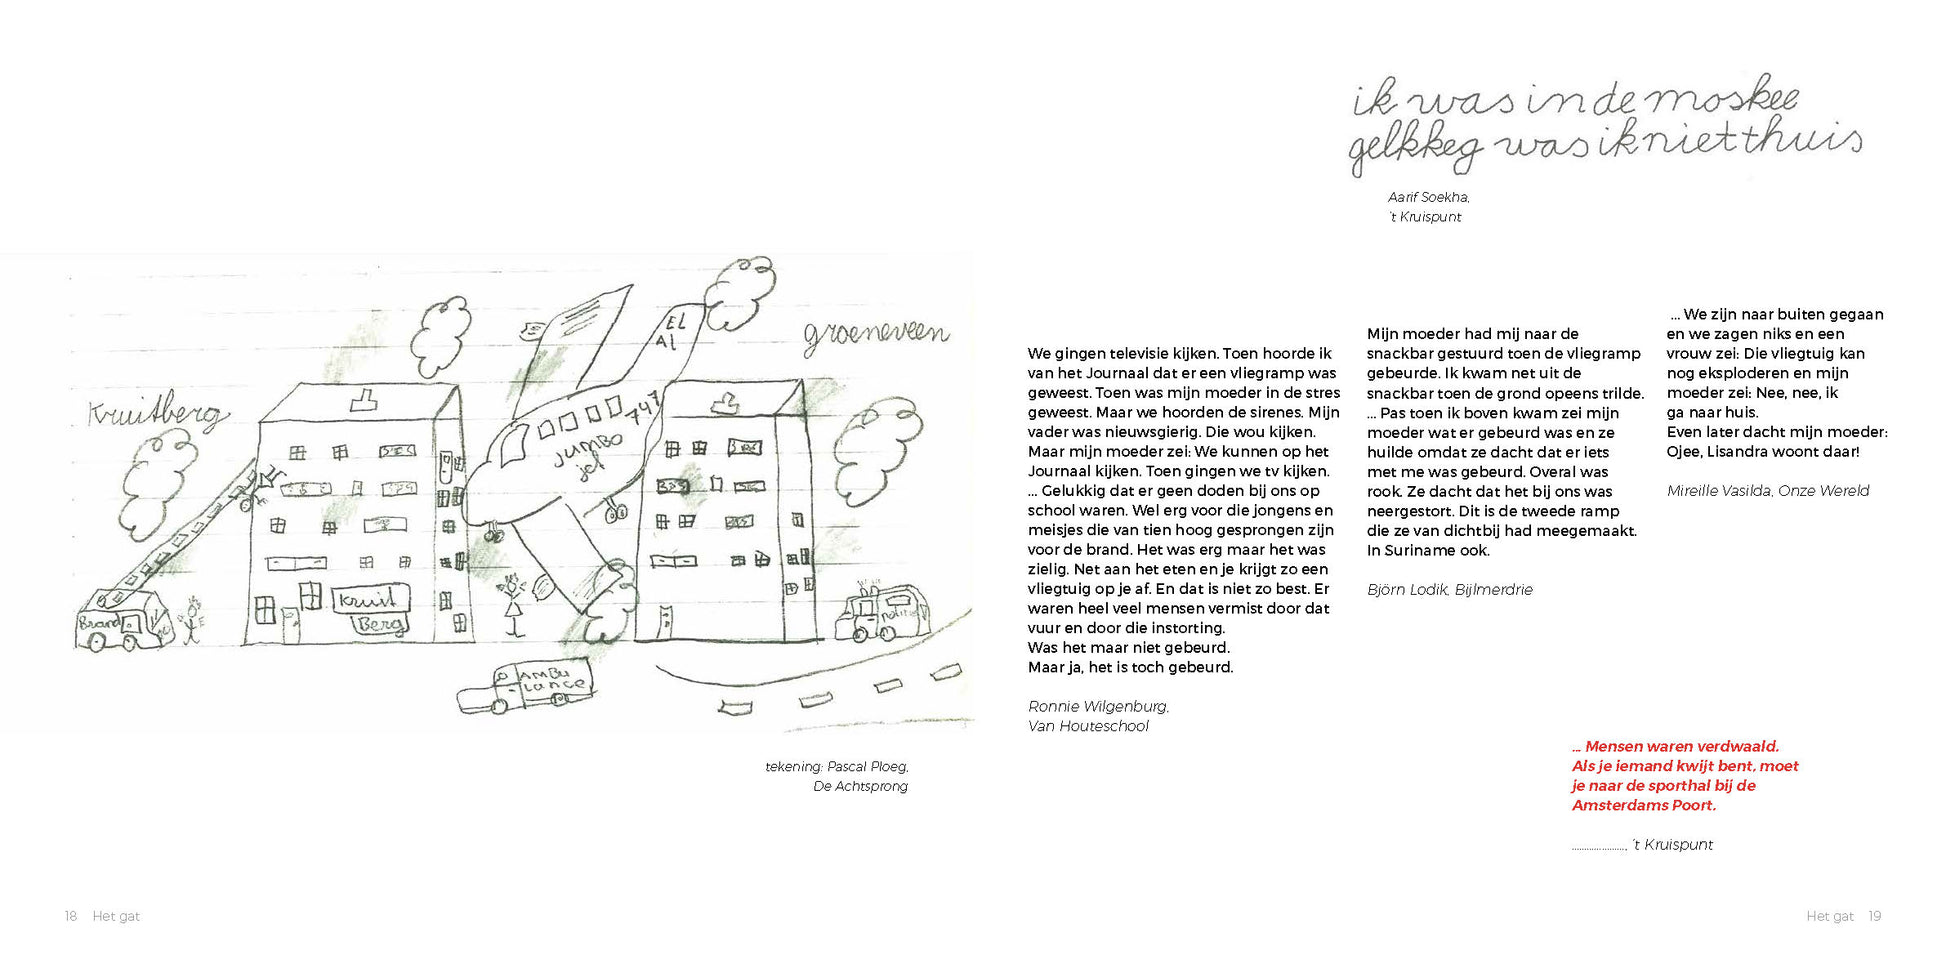 Kruitberg
groeneveen
EL
Al
747
Jumbo
jet
Brand
Kruit
Berg
politie
AMBU
Lance
tekening: Pascal Ploeg,
De Achtsprong
18 Het gat
ik was in de moskee
gelkkeg was ik niet thuis
Aarif Soekha,
't Kruispunt
We gingen televisie kijken. Toen hoorde ik
van het Journaal dat er een vliegramp was
geweest. Toen was mijn moeder in de stres
geweest. Maar we hoorden de sirenes. Mijn
vader was nieuwsgierig. Die wou kijken.
Maar mijn moeder zei: We kunnen op het
Journaal kijken. Toen gingen we tv kijken.
... Gelukkig dat er geen doden bij ons op
school waren. Wel erg voor die jongens en
meisjes die van tien hoog gesprongen zijn
voor de brand. Het was erg maar het was
zielig. Net aan het eten en je krijgt zo een
vliegtuig op je af. En dat is niet zo best. Er
waren heel veel mensen vermist door dat
vuur en door die instorting.
Was het maar niet gebeurd.
Maar ja, het is toch gebeurd.
Ronnie Wilgenburg,
Van Houteschool
Mijn moeder had mij naar de
snackbar gestuurd toen de vliegramp
gebeurde. Ik kwam net uit de
snackbar toen de grond opeens trilde.
... Pas toen ik boven kwam zei mijn
moeder wat er gebeurd was en ze
huilde omdat ze dacht dat er iets
met me was gebeurd. Overal was
rook. Ze dacht dat het bij ons was
neergestort. Dit is de tweede ramp
die ze van dichtbij had meegemaakt.
In Suriname ook.
Björn Lodik, Bijlmerdrie
... We zijn naar buiten gegaan
en we zagen niks en een
vrouw zei: Die vliegtuig kan
nog eksploderen en mijn
moeder zei: Nee, nee, ik
ga naar huis.
Even later dacht mijn moeder:
Ojee, Lisandra woont daar!
Mireille Vasilda, Onze Wereld
... Mensen waren verdwaald.
Als je iemand kwijt bent, moet
je naar de sporthal bij de
Amsterdams Poort.
......................, 't Kruispunt
Het gat 19